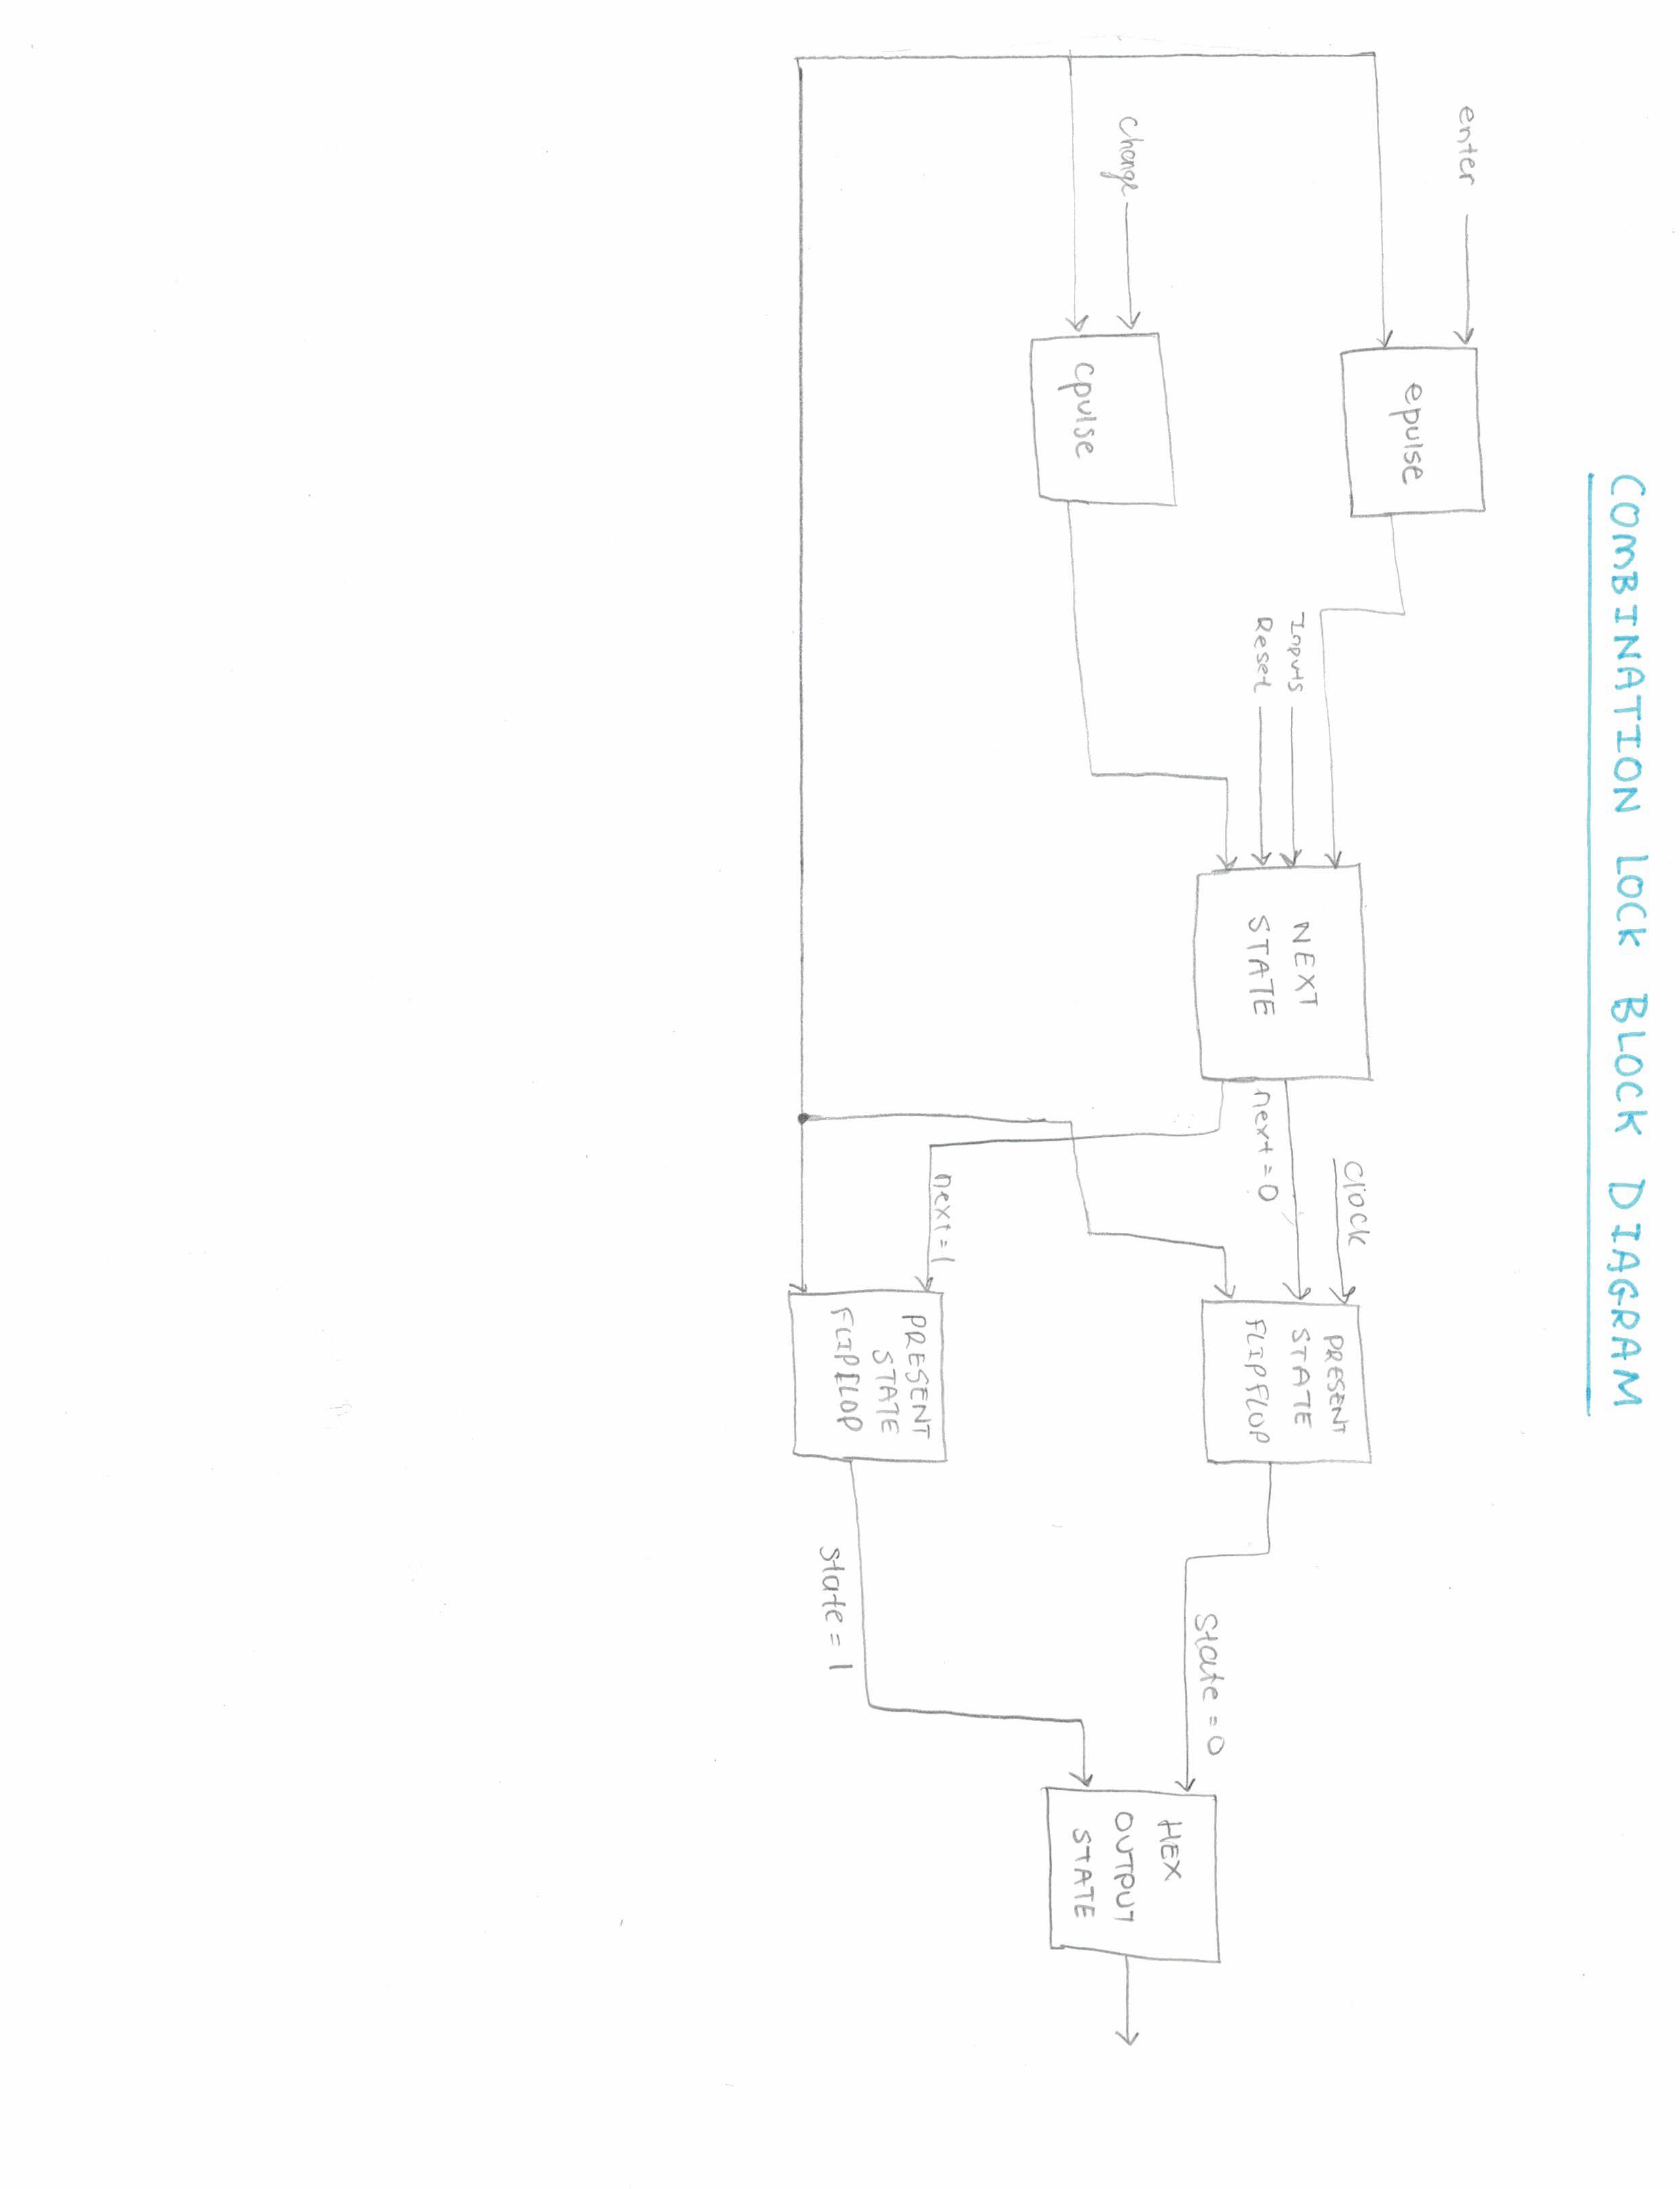 COMBINATION LOCK BLOCK DIAGRAM
enter
epulse
change
cpulse
Inputs
Reset
NEXT
STATE
next=0
next=1
Clock
PRESENT
STATE
FLIPFLOP
PRESENT
STATE
FLIPFLOP
State=0
State=1
HEX
OUTPUT
STATE